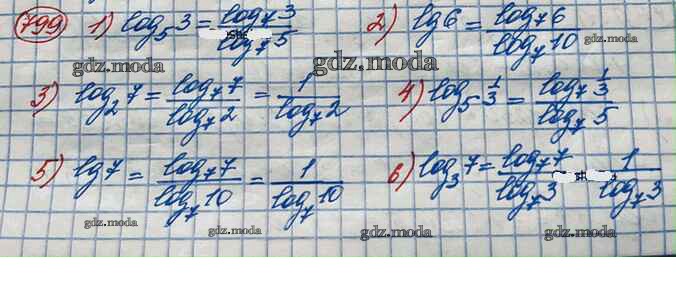 799 1) log₅3 = log₇3 / log₇5 2) lg6 = log₇6 / log₇10
gdz.moda gdz.moda gdz.moda
3) log₂7 = log₇7 / log₇2 = 1 / log₇2 4) log₅ 1/3 = log₇ 1/3 / log₇5
5) lg7 = log₇7 / log₇10 = 1 / log₇10 6) log₃7 = log₇7 / log₇3 1 / log₇3
gdz.moda gdz.moda gdz.moda gdz.moda